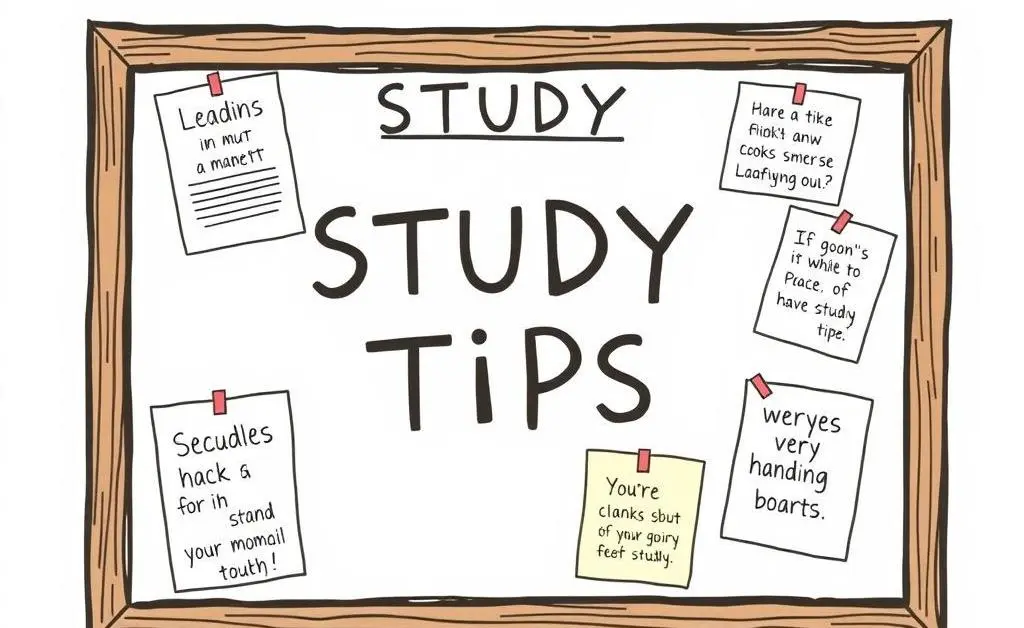 STUDY
STUDY
TiPS
Leadins
in mut
a mane't
Hare a tike
anw
cooks smerse
Laafiyng out.?
If goon"s
it while to
Prace, of
have study
tipe.
Secudles
hack &
for in
stand
your momail
touth!
You're
clanks sbut
of your goiry
feet studly.
weryes
very
handing
boarts.